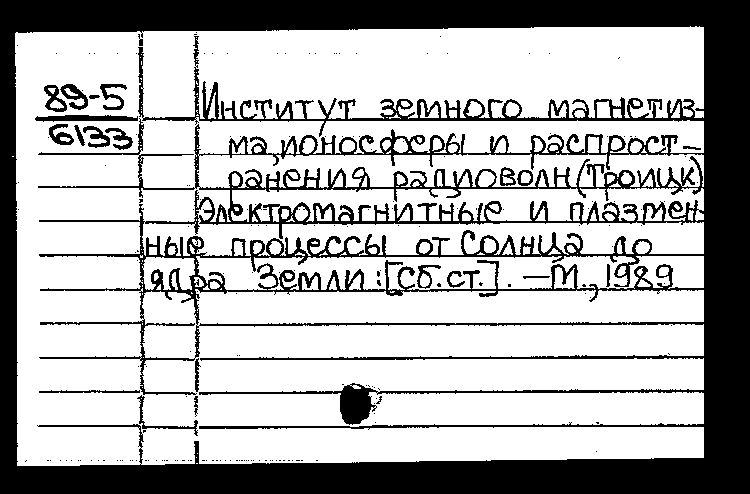 89-5
6133
Институт земного магнетиз-
ма, ионосферы и распрост-
ранения радиоволн (Троицк)
Электромагнитные и плазмен-
ные процессы от Солнца до
ядра Земли: [Сб. ст.]. – М., 1989